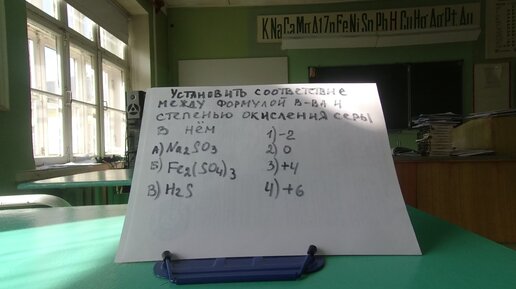 K Na Ca Mg Al Zn Fe Ni Sn Pb H Cu Hg Ag Pt Au
УСТАНОВИТЬ СООТВЕТСТВИЕ
МЕЖДУ ФОРМУЛОЙ В-ВА И
СТЕПЕНЬЮ ОКИСЛЕНИЯ СЕРЫ
В НЁМ 1) -2
А) Na2SO3 2) 0
Б) Fe2(SO4)3 3) +4
В) H2S 4) +6